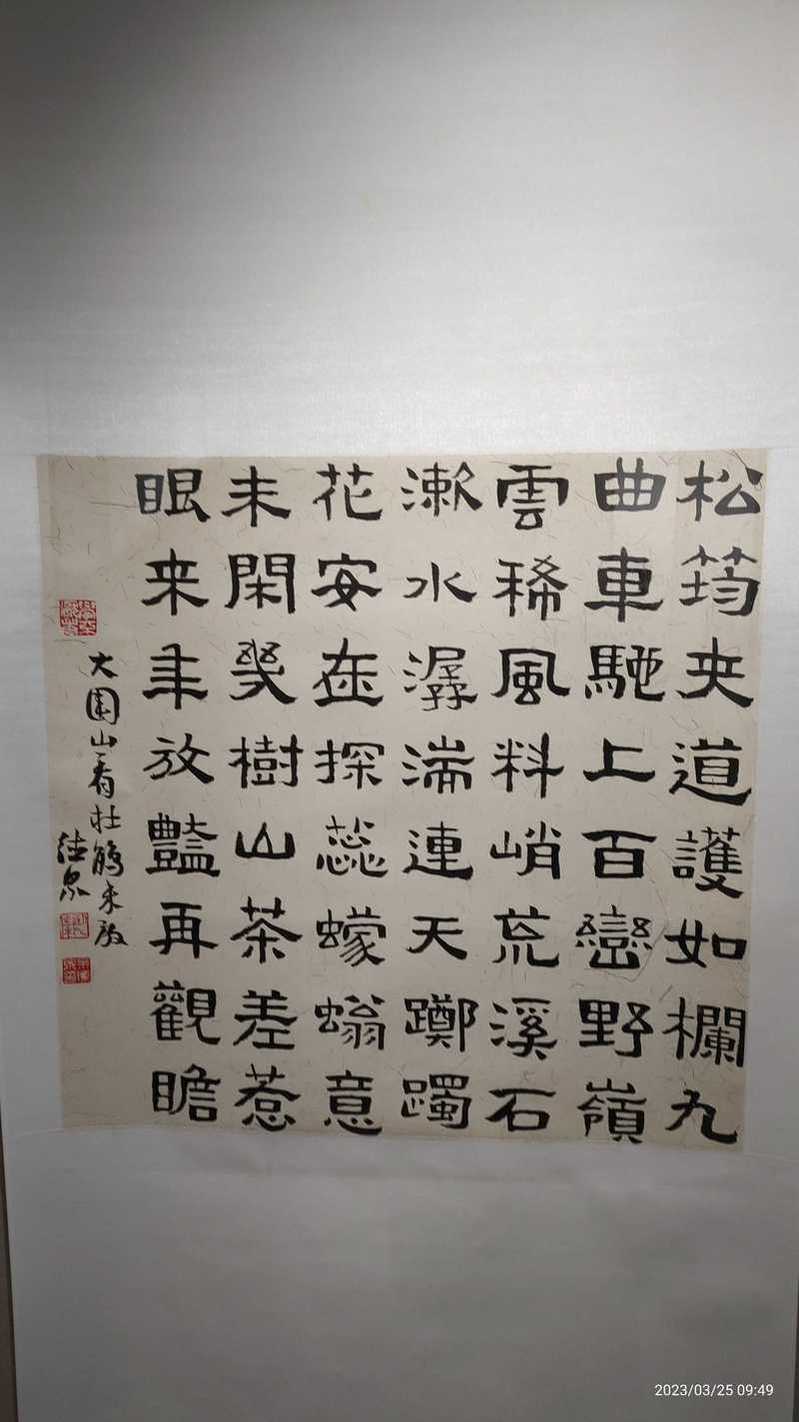 松筠夹道護如欄九
曲車馳上百巒野嶺
雲稀風料峭荒溪石
漱水潺湍連天躑躅
花安在探蕊蠓螉意
未閑幾樹山茶差惹
眼来年放豔再觀瞻
大围山看杜鵑未放
2023/03/25 09:49